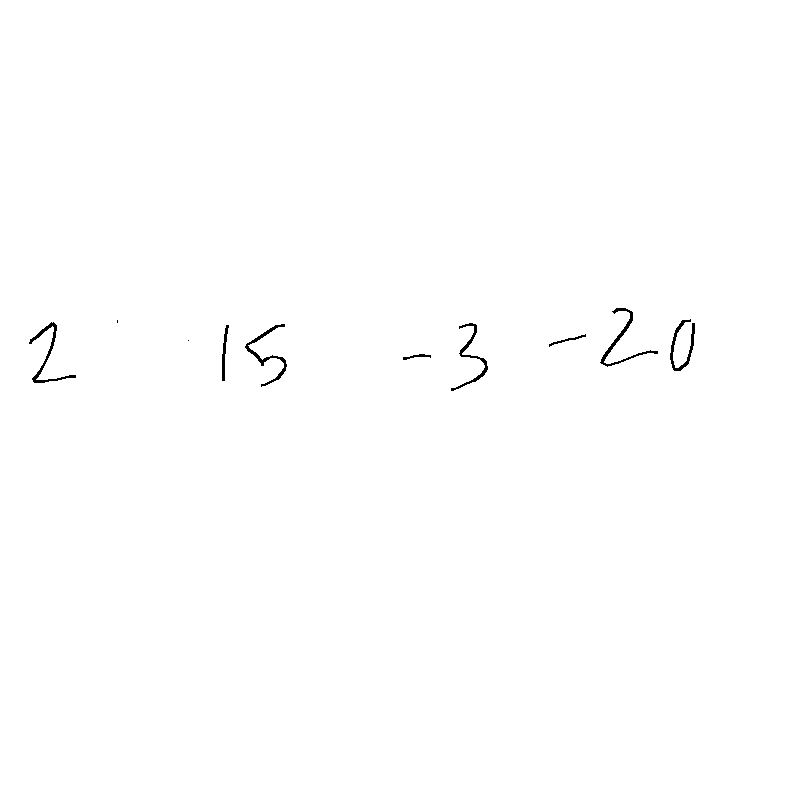 2 15 -3 -20